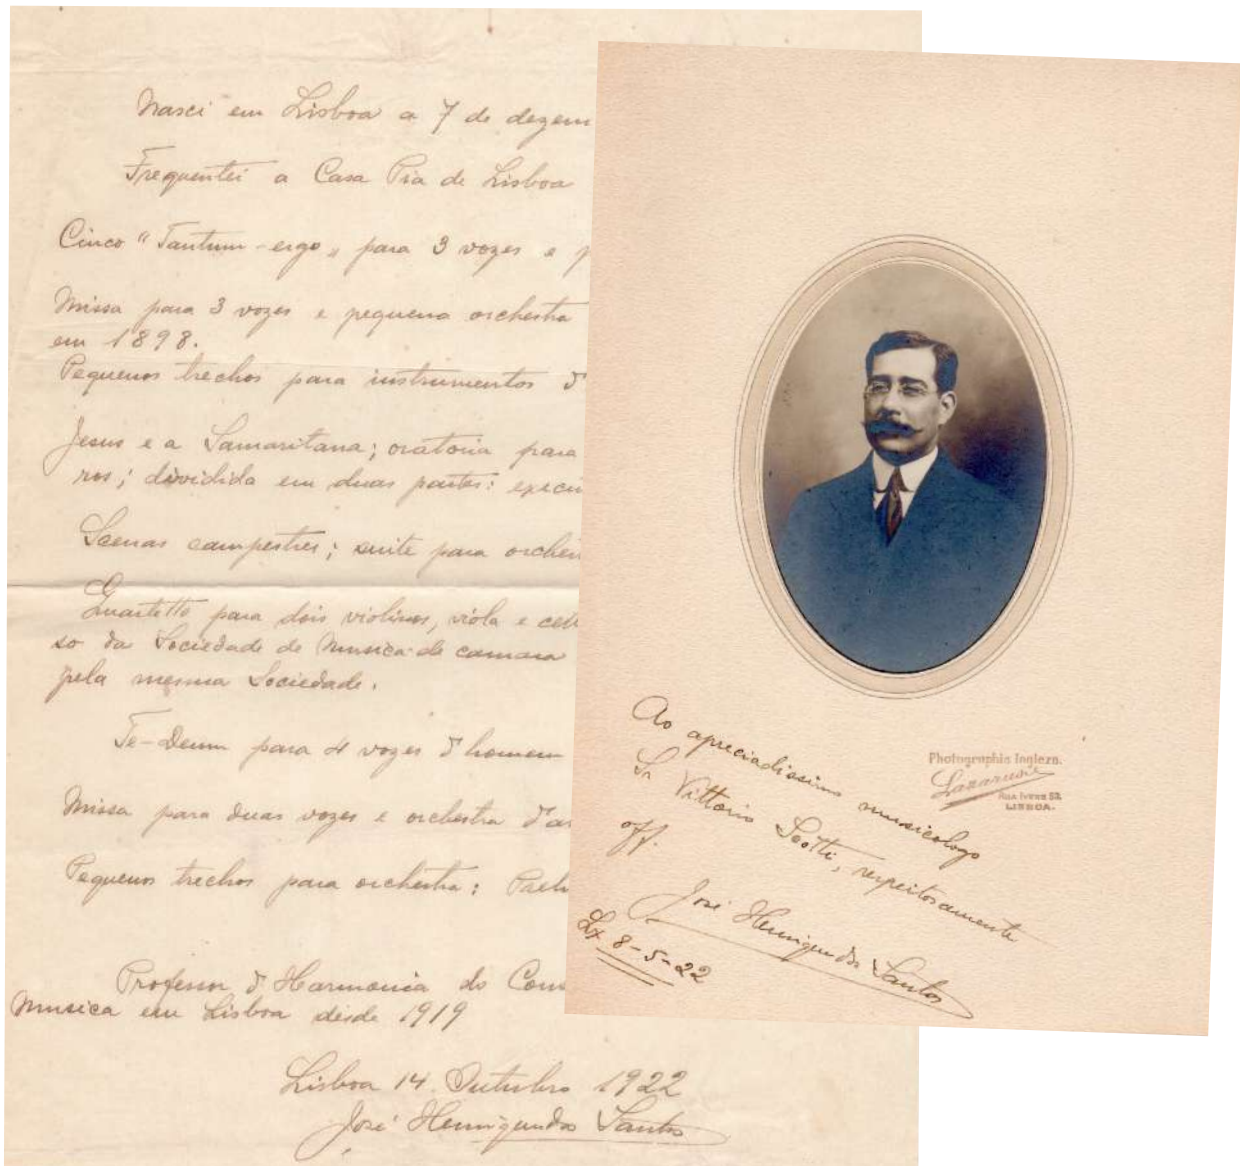 Nasci em Lisboa a 7 de dezem
Frequentei a Casa Pia de Lisboa
Cinco "Tantum-ergo" para 3 vozes e p
Missa para 3 vozes e pequena orchestra
em 1898.
Pequenos trechos para instrumentos d'
Jesus e a Samaritana; oratoria para
ros; dividida em duas partes: execu
Scenas campestres; suite para orches
Quartetto para dois violinos, viola e cel
so da Sociedade de Musica de camara
pela mesma Sociedade.
Te-Deum para 4 vozes d'homem
Missa para duas vozes e orchestra d'ar
Pequenos trechos para orchestra: Prel
Professor d'Harmonia do Cons
Musica em Lisboa desde 1919
Lisboa 14 Outubro 1922
José Henrique dos Santos
Photographia Ingleza.
Rua Ivens 52
LISBOA.
Ao apreciadissimo musicologo
Sr Vittorio Scotti, respeitosamente
off.
José Henrique dos Santos
Lx 8-5-22